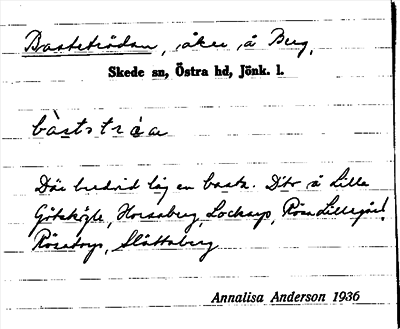 Basteträdan, åker å Berg,
Skede sn, Östra hd, Jönk. l.
bàststráa
Där bredvid låg en basta. Dito å Lilla
Götsköle, Horsaberg, Lockarp, Rösa Lillegård,
Rösatorp, Slättaberg
Annalisa Anderson 1936